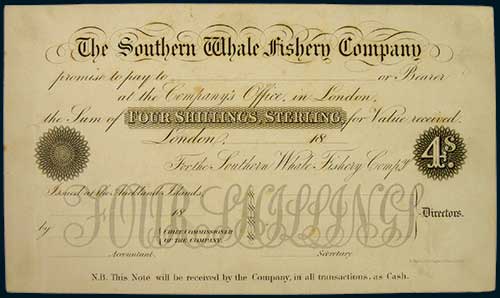 The Southern Whale Fishery Company
promise to pay to or Bearer
at the Company's Office, in London,
the Sum of FOUR SHILLINGS, STERLING, for Value received.
London, 18
For the Southern Whale Fishery Compy
4s.
Issued at the Auckland Islands,
FOUR SHILLINGS
18
by CHIEF COMMISSIONER
OF THE COMPANY.
Directors.
Accountant. Secretary.
N.B. This Note will be received by the Company, in all transactions, as Cash.